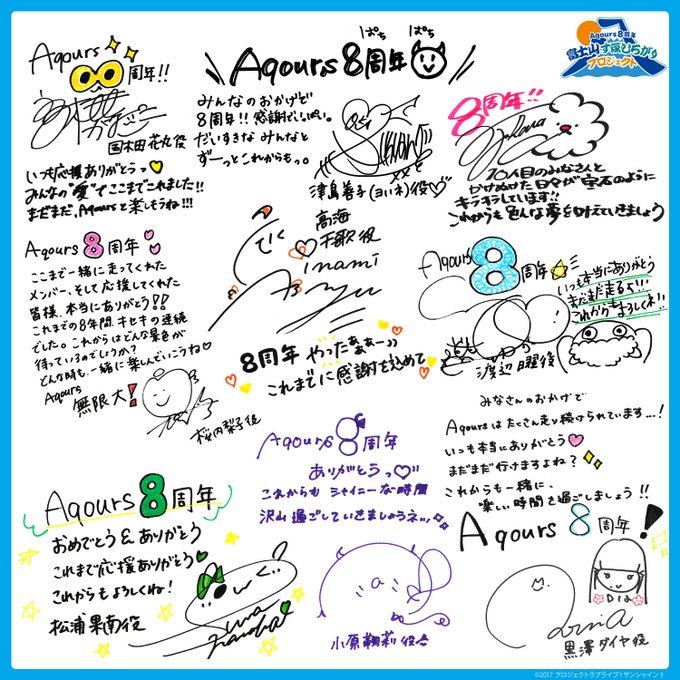 Aqours
8周年!!
国木田 花丸役
いつも応援ありがとうっ
みんなの"愛"でここまでこれました!!
まだまだ、Aqoursと楽しもうね!!!
ぱち ぱち
Aqours 8周年
みんなのおかげで
8周年!! 感謝でいっぱい。
だいすきな みんなと
ずーっとこれからも。。
津島善子(ヨハネ)役♡
Aqours 8周年
富士山ずら~
プロジェクト
8周年!!
10人目のみなさんと
かけぬけた日々が宝石のように
キラキラしています!!
これからも色んな夢を叶えていきましょう
Aqours 8周年
ここまで一緒に走ってくれた
メンバー、そして応援してくれた
皆様、本当にありがとう!!
これまでの8年間、キセキの連続
でした。これからはどんな景色が
待っているのでしょうか?
どんな時も、一緒に楽しんでいこうね♡
Aqours
無限大!
桜内梨子役
高海
千歌役
inami
anju
8周年 やったぁぁー))
これまでに感謝を込めて
Aqours
8周年
いつも本当にありがとう
まだまだ走るよ!!!
これからもよろしくね!!
渡辺曜役
みなさんのおかげで
Aqoursはたくさん走り続けられています...!
いつも本当にありがとう
まだまだ行けますよね?
これからも一緒に、
楽しい時間を過ごしましょう!!
Aqours 8周年!
Dia
黒澤ダイヤ役
Aqours 8周年
ありがとうっ♡
これからも シャイニーな時間
沢山過ごしていきましょうネッ
小原鞠莉役
Aqours 8周年
おめでとう&ありがとう
これまで応援ありがとう
これからもよろしくね!
松浦果南役
©2017 プロジェクトラブライブ!サンシャイン!!